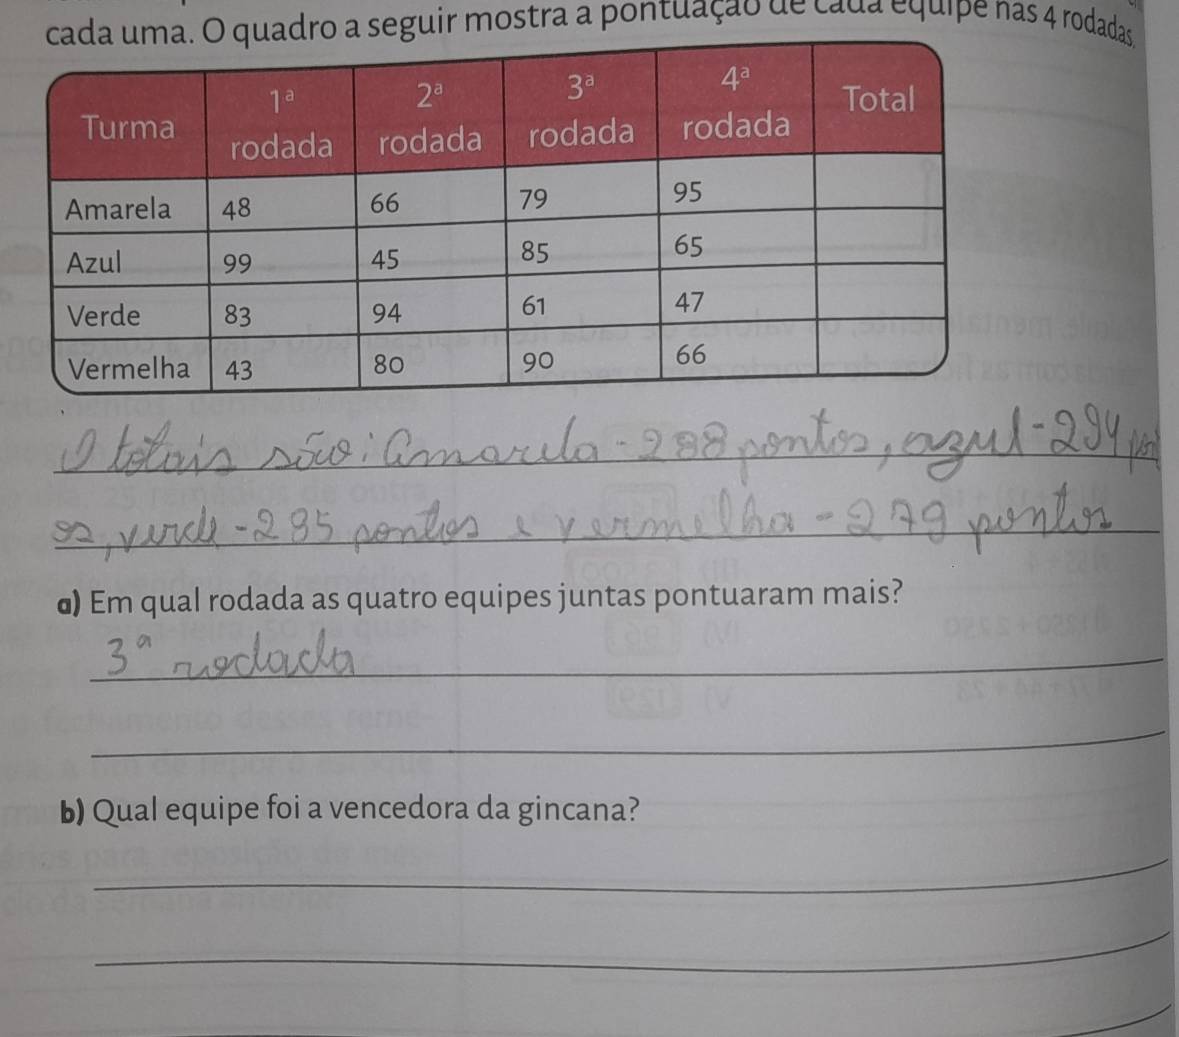 cada uma. O quadro a seguir mostra a pontuação de cada equipe nas 4 rodadas.
Turma 1ª rodada 2ª rodada 3ª rodada 4ª rodada Total
Amarela 48 66 79 95
Azul 99 45 85 65
Verde 83 94 61 47
Vermelha 43 80 90 66
O totais são: Amarela - 288 pontos, azul - 294 pont
os, verde - 285 pontos e vermelha - 279 pontos
a) Em qual rodada as quatro equipes juntas pontuaram mais?
3ª rodada
b) Qual equipe foi a vencedora da gincana?